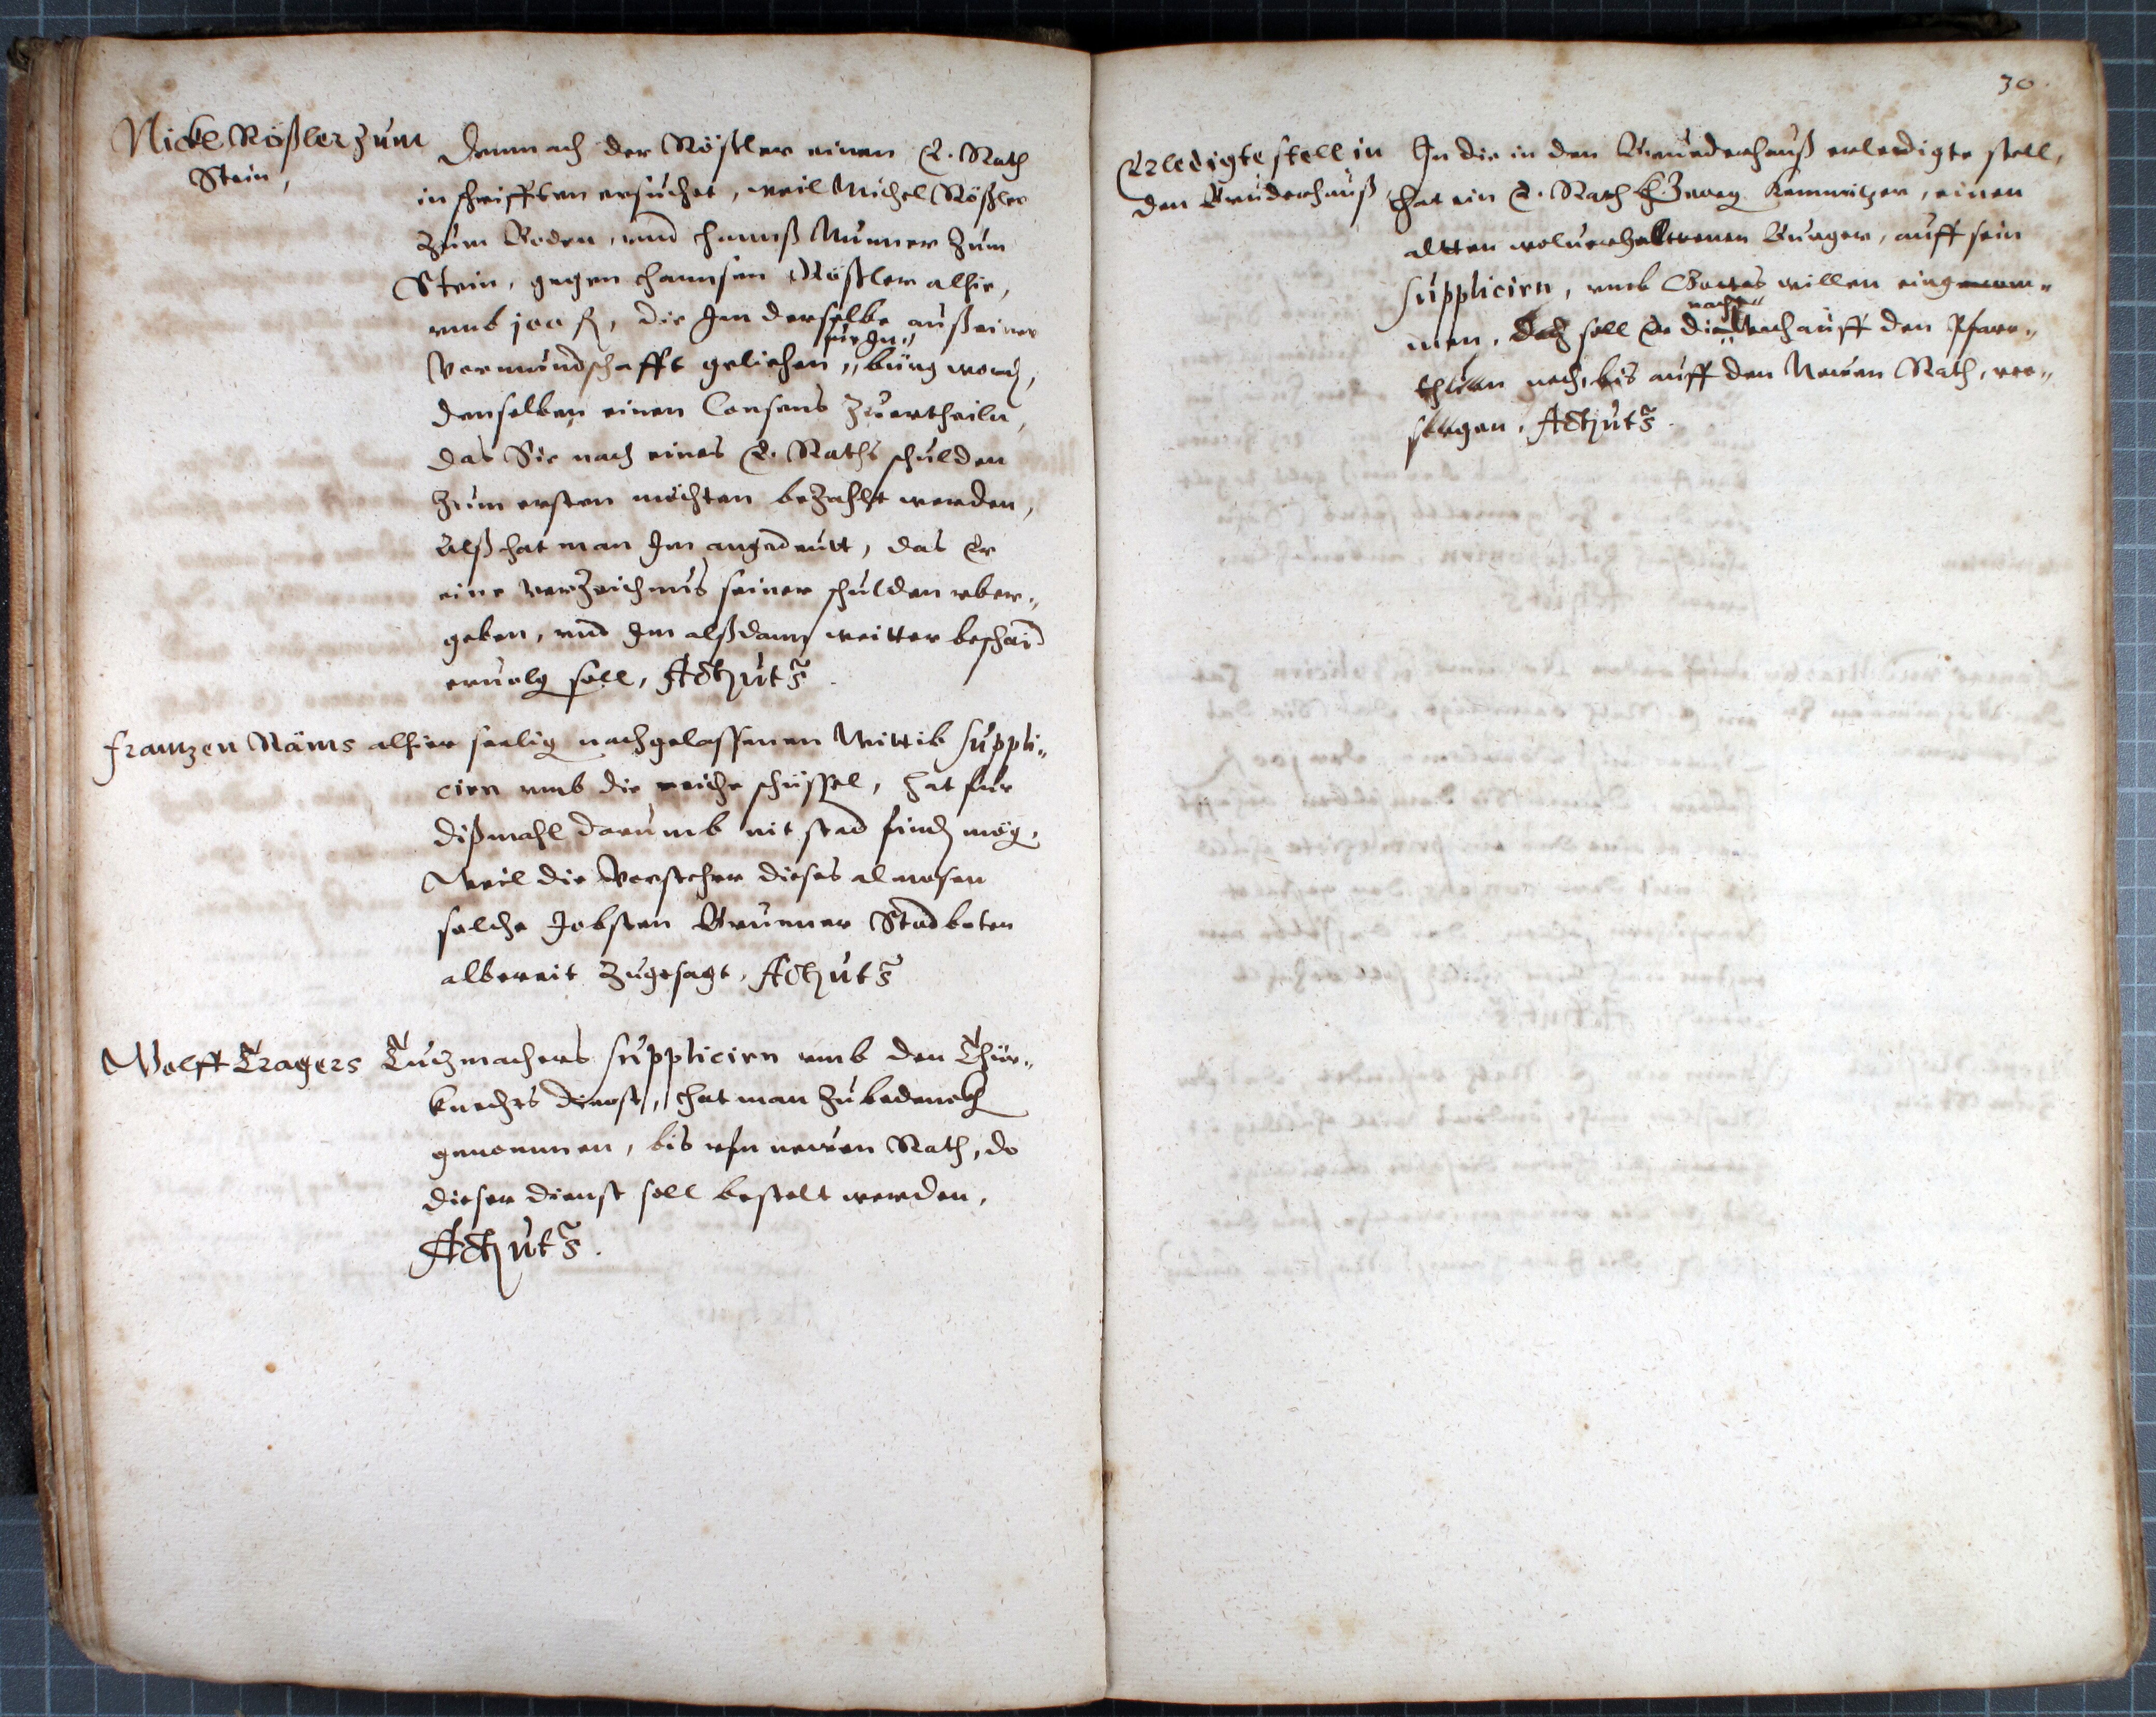 Nickl Rößler zum
Stein,
Demnach der Rößler einen E. Rath
in schrifften ersuchet, weil Michel Rößler
zum Boden, und Hannß Munner zum
Stein, gegen Hannsen Rößler alhie,
umb 100 fl, die Im derselbe auß einer
Vormundschafft geliehen, für In bürg word,
denselben einen Consens zuertheiln,
das Sie nach eines E. Raths schulden
zum ersten möchten bezahlt werden,
Alß hat man Im angedeutt, das Er
eine verzeichnus seiner schulden uber-
geben, und Im alßdann weitter beschaid
ervolg soll, Act ut s.
Frantzen Näms alhier seelig nachgelassenen Wittib suppli-
cirn umb die reiche schüssel, hat für
dißmahl darumb nit stad find mög,
Weil die Vorsteher dieses almosen
solche Jobsten Brunner Stadboten
albereit zugesagt. Act ut s
Wolff Tragers Tuchmachers supplicirn umb den Thür-
knechts dienst, hat man zubedenck
genommen, bis ufn neuen Rath, do
dieser dienst soll bestelt werden,
Act ut s.
30
Erledigte stell in
den Bruderhauß
In die in den Bruederhauß erledigte stell,
hat ein E. Rath Georg Kemnitzer, einen
altten wolverhaltenen Burger, auff sein
suppliciren, umb Gottes willen eingenom-
men, doch soll Er die nacht wach auff den Pfarr-
thurn noch, bis auff den Neuen Rath, ver-
sorgen, Act ut s.